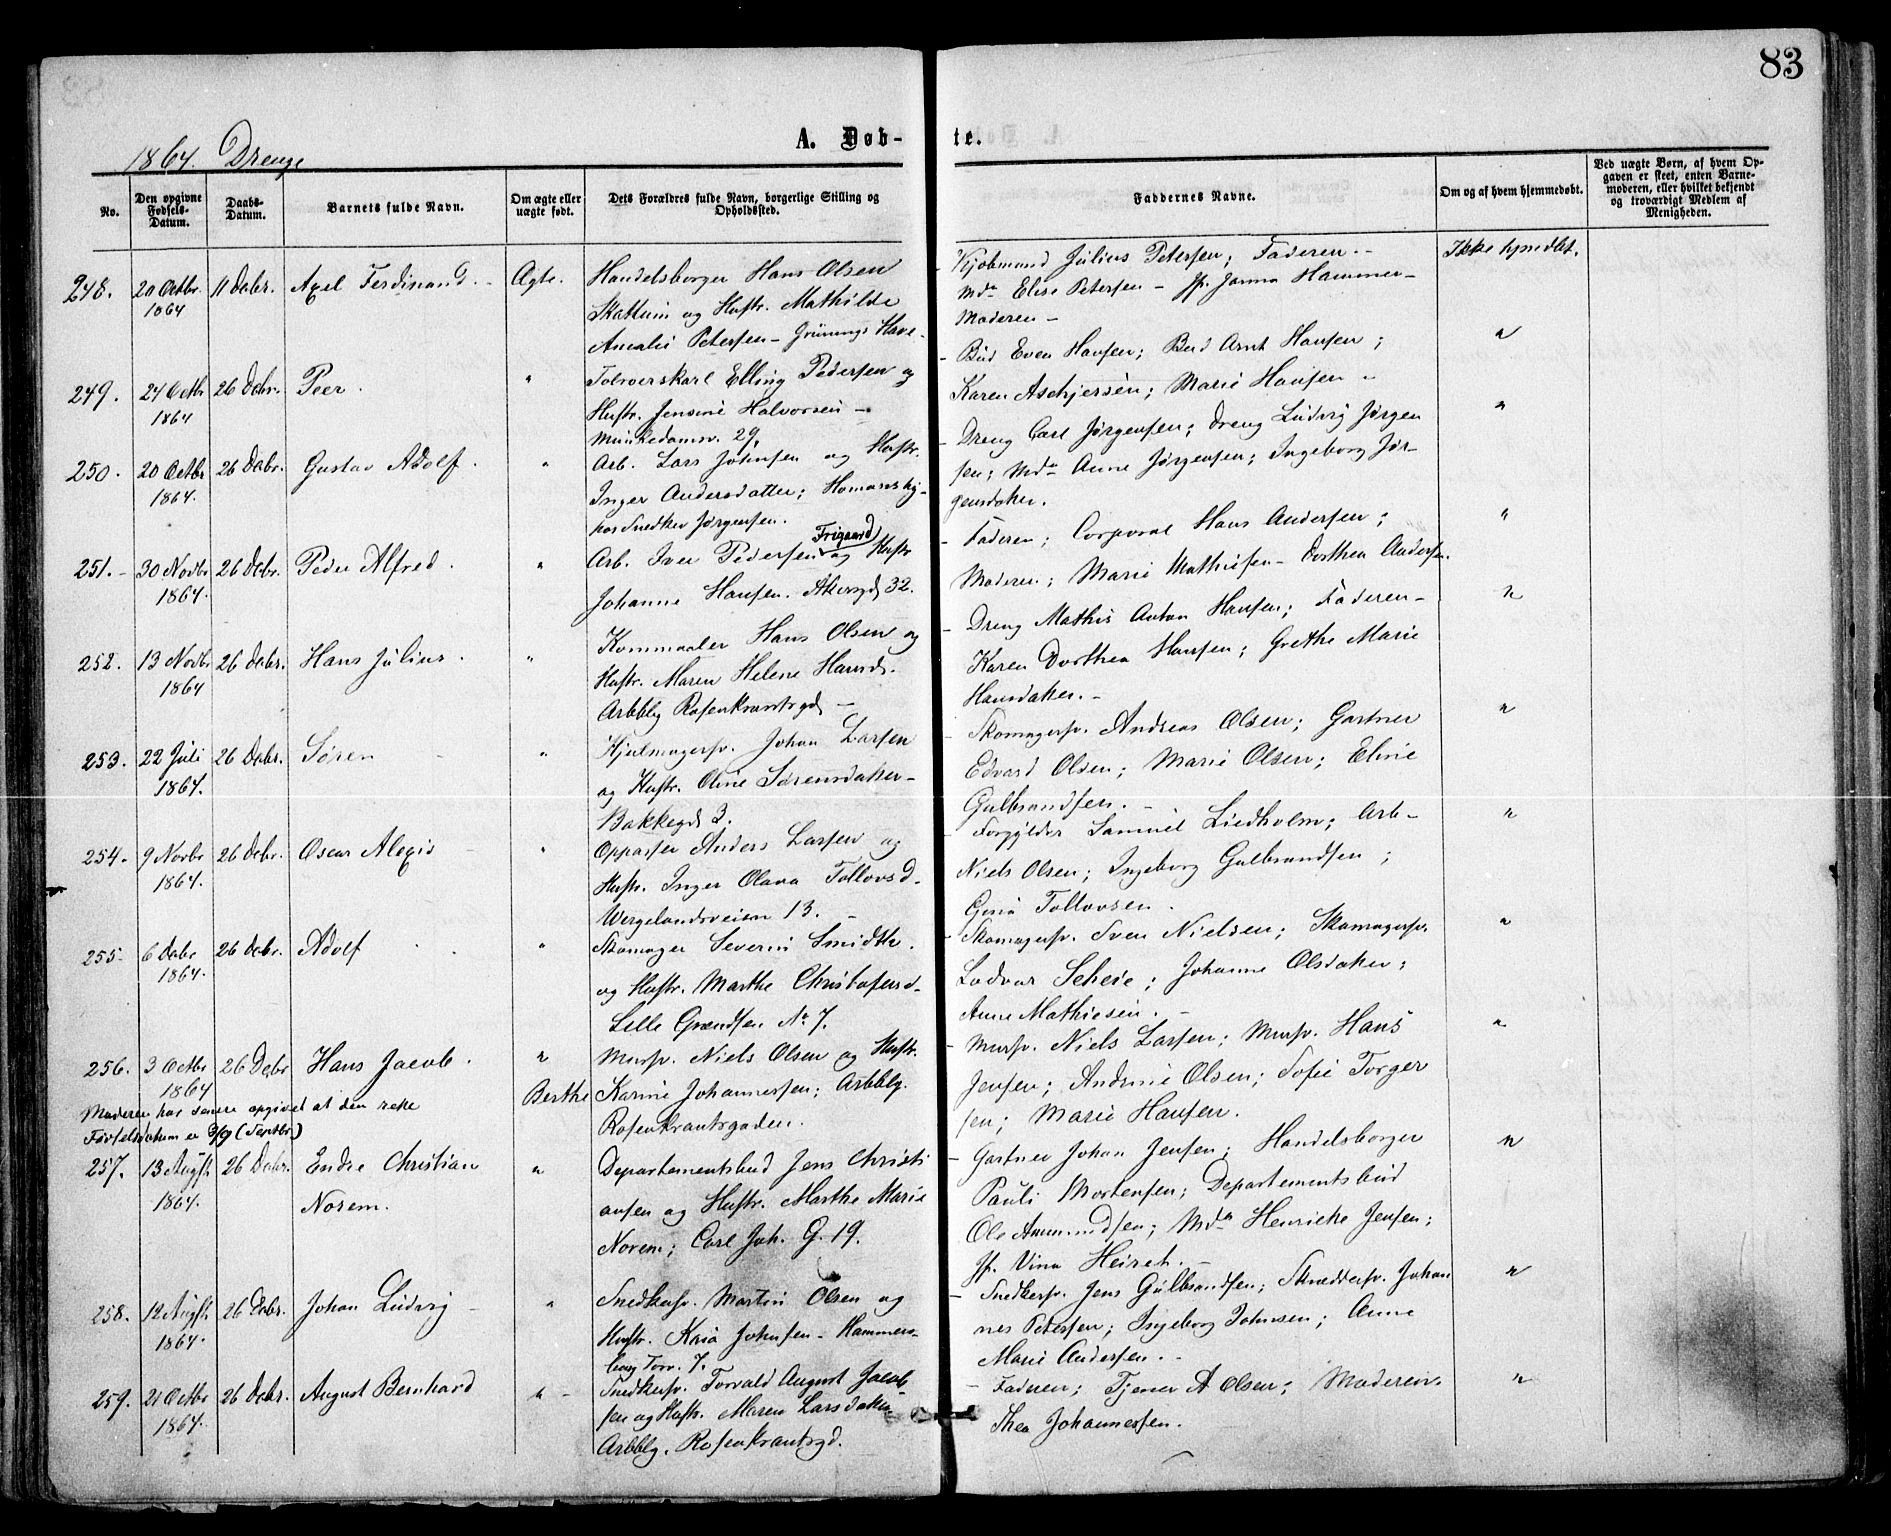 83
1864. Drenge
A. Døb-
te.
No.
Den opgivne Fødsels-Datum.
Daabs-Datum.
Barnets fulde Navn.
Om ægte eller uægte født.
Dets Forældres fulde Navn, borgerlige Stilling og Opholdssted.
Faddernes Navne.
Om og af hvem hjemmedøbt.
Ved uægte Børn, af hvem Op-
gaven er skeet, enten Barne-
moderen, eller hvilket bekjendt
og troværdigt Medlem af
Menigheden.
248. 20 Octbr. 1864 11 Decbr. Axel Ferdinand. Ægte.
Handelsborger Hans Olsen
Skattum og Hustr. Mathilde
Amalie Petersen - Grünings Have -
Kjøbmand Julius Petersen; Faderen -
Mdm Elise Petersen - Jf. Janna Hammer -
Moderen -
Ikke hjmdbt.
249. 24 Octbr 1864 26 Decbr. Peer. "
Tolverskarl Elling Pedersen og
Hustr. Jensine Halvorsen -
Munkedamsv. 29.
Bud Even Hansen; Bud Arnt Hansen;
Karen Aschjersen; Marie Hansen -
"
250. 20 Octbr 1864. 26 Decbr. Gustav Adolf. "
Arb. Lars Johnsen og Hustr.
Inger Andersdatter; Homansby -
hos Snedker Jørgensen.
Dreng Carl Jørgensen; Dreng Ludvig Jørgen
sen; Mdm Anne Jørgensen; Ingeborg Jør-
gensdater.
"
251. - 30 Novbr 1864. 26 Decbr. Peder Alfred. "
Arb. Iver Pedersen Frigaard og Hustr
Johanne Hansen. Akersgd 32.
Faderen; Corporal Hans Andersen;
Moderen; Marie Mathisen - Dorthea Andersen.
"
252. 13 Novbr 1864 26 Decbr. Hans Julius. "
Kornmaaler Hans Olsen og
Hustr. Maren Helene Hansd.
Arbblg Rosenkrantzgd -
Dreng Mathis Anton Hansen; Faderen -
Karen Dorthea Hansen; Grethe Marie
Hansdater. -
"
253. 22 Juli 1864. 26 Decbr. Søren - "
Hjulmagersv. Johan Larsen
og Hustr. Oline Sørensdater -
Bakkegd 3.
Skomagersv. Andreas Olsen; Gartner
Edvard Olsen; Marie Olsen; Eline
Gulbrandsen. -
"
254. 9 Novbr 1864. 26 Decbr. Oscar Alexis - "
Oppasser Anders Larsen og
Hustr. Inger Olava Tollovsd -
Wergelandsveien 13. -
Forgylder Samuel Liedholm; Arb -
Niels Olsen; Ingeborg Gulbrandsen;
Gina Tollovsen.
"
255 6 Decbr 1864. 26 Decbr. Adolf "
Skomager Severin Smidth
og Hustr. Marthe Christofersd -
Lille Grændsen No 7.
Skomagersv. Sven Nielsen; Skomagersv.
Ladvar Scheie; Johanne Olsdater;
Anne Mathiesen. -
"
256. 3 Octbr 1864 26 Decbr Hans Jacob. "
Mursv. Niels Olsen og Hustr.
Berthe Karine Johannessen; Arbblg.
Rosenkrantzgaden.
Mursv. Niels Larsen; Mursv. Hans
Jensen; Andrine Olsen; Sofie Torger
sen; Marie Hansen.
"
Moderen har senere opgivet at den rette
Fødselsdatum er 3/9 (Septbr.)
257. 13 Augst. 1864. 26 Decbr. Endre Christian
Norem. "
Departementsbud Jens Christi
ansen og Hustr. Marthe Marie
Norem; Carl Joh. G. 19.
Gartner Johan Jensen; Handelsborger
Pauli Mortensen; Departementsbud
Ole Amundsen; Mdm Henriche Jensen;
Jf. Vina Heiret. -
"
258. 12 Augst. 1864. 26 Decbr. Johan Ludvig - "
Snedkersv. Martin Olsen og
Hustr. Kaia Johnsen - Hammers-
borg Torv. 7.
Snedkersv. Jens Gulbrandsen; Skræddersv. Johan
nes Petersen; Ingeborg Johnsen; Anne
Marie Andersen. -
"
259. 21 Octbr 1864. 26 Decbr. August Bernhard " -
Snedkersv. Torvald August Jacob-
sen og Hustr. Maren Larsdater
Arbblg. Rosenkrantzgd.
Faderen; Tjener A Olsen; Moderen.
Thea Johannessen.
"